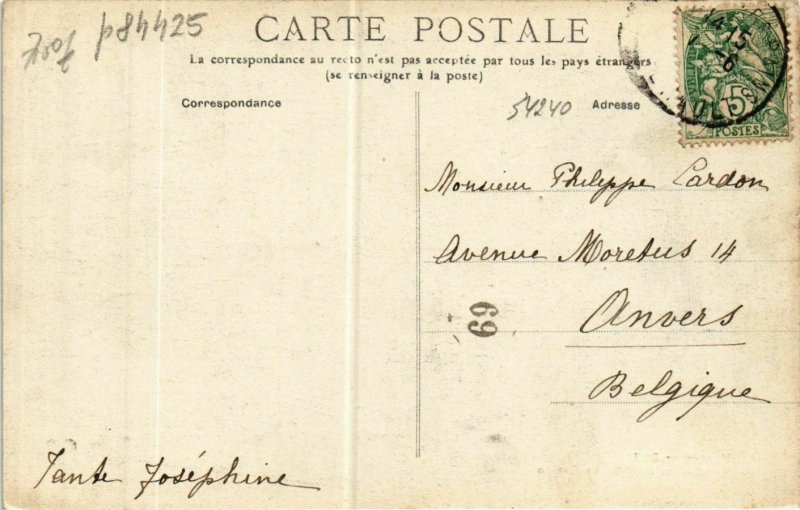 p84425
CARTE POSTALE
La correspondance au recto n'est pas acceptée par tous les pays étrangers
(se renseigner à la poste)
Correspondance
54240
Adresse
5
POSTES
Monsieur Philippe Cardon
Avenue Moretus 14
69
Anvers
Belgique
Tante Joséphine